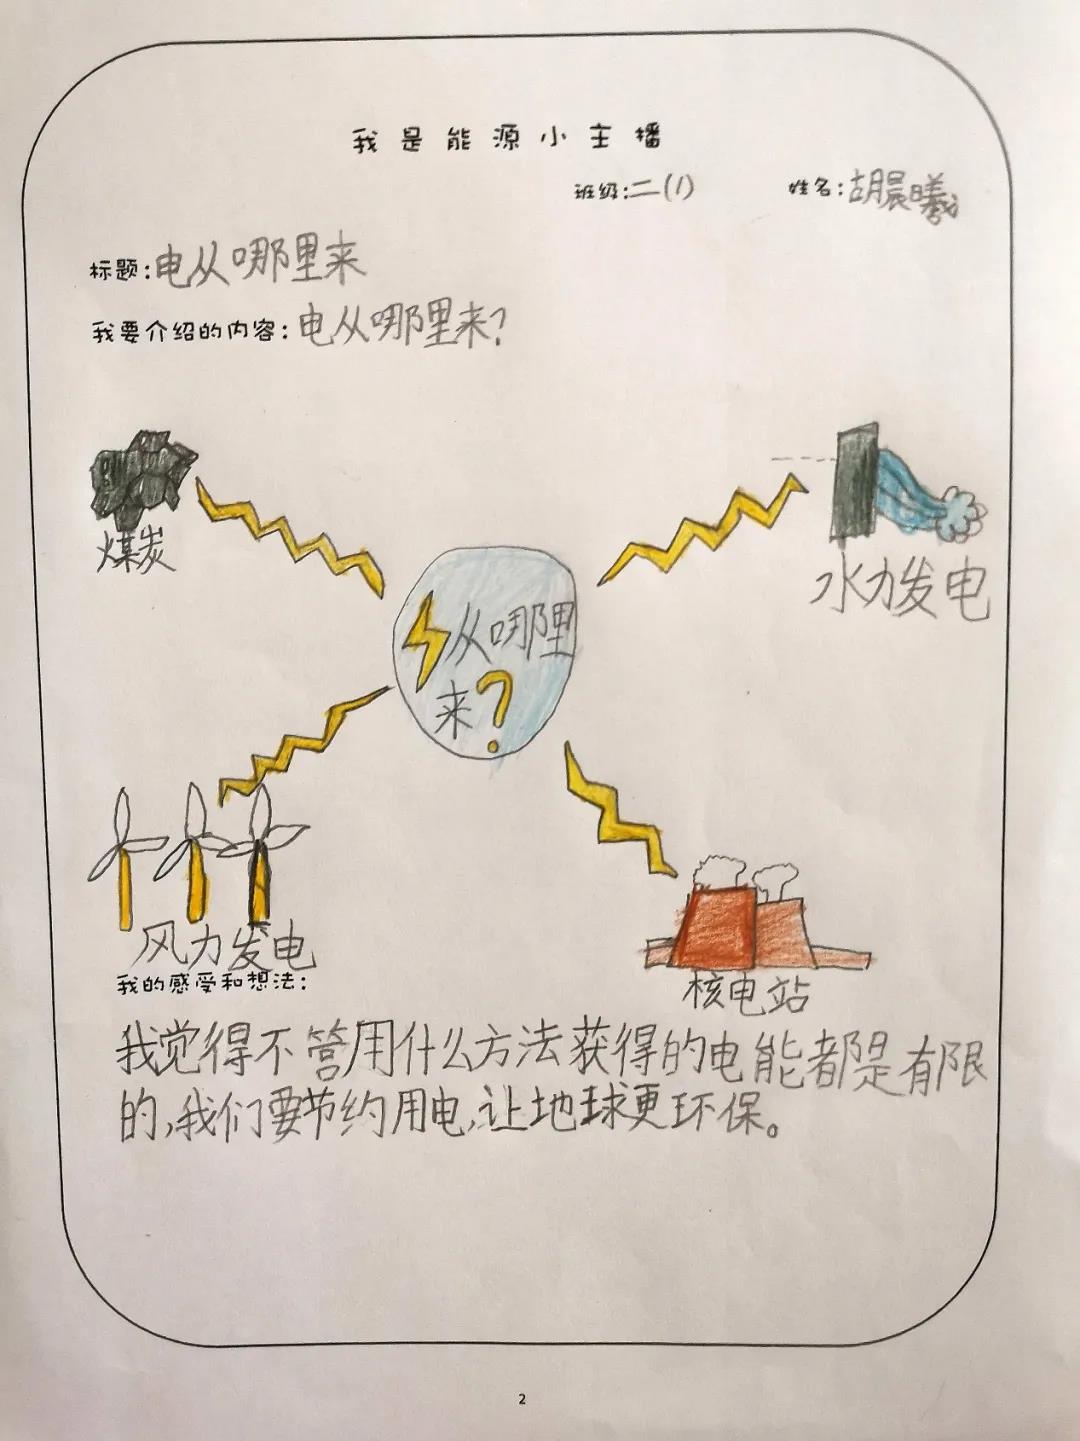 我是能源小主播
班级:二(1) 姓名:胡晨曦
标题:电从哪里来
我要介绍的内容:电从哪里来?
煤炭
水力发电
从哪里
来?
风力发电
核电站
我的感受和想法:
我觉得不管用什么方法获得的电能都是有限
的,我们要节约用电,让地球更环保。
2